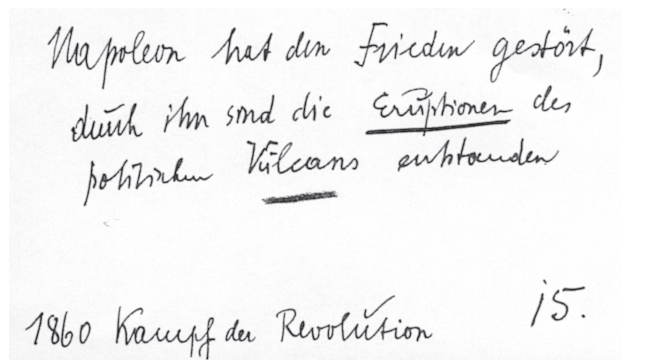 Napoleon hat den Frieden gestört,
durch ihn sind die Eruptionen des
politischen Vulcans entstanden
1860 Kampf der Revolution
15.